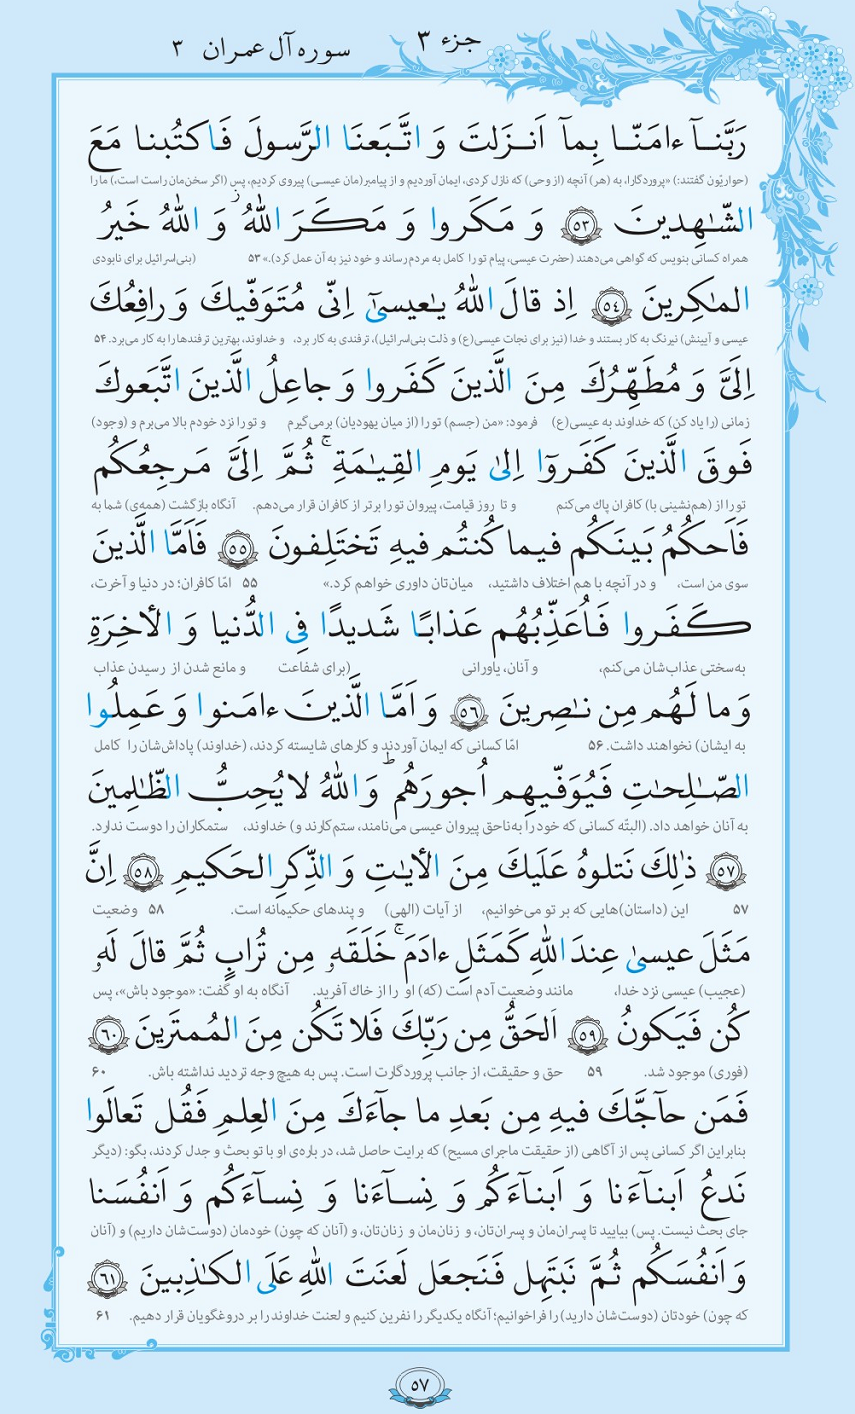 جزء ۳
سوره آل عمران ۳
رَبَّنآ ءامَنّا بِمآ اَنزَلتَ وَ اتَّبَعنَا الرَّسولَ فَاكتُبنا مَعَ
(حواریّون گفتند:) «پروردگارا، به (هر) آنچه (از وحی) که نازل کردی، ایمان آوردیم و از پیامبر(مان عیسی) پیروی کردیم، پس (اگر سخن‌مان راست است،) ما را
الشّٰهِدينَ ﴿٥٣﴾ وَ مَكَروا وَ مَكَرَ اللهُ ۖ وَ اللهُ خَيرُ
همراه کسانی بنویس که گواهی می‌دهند (حضرت عیسی، پیام تو را کامل به مردم رساند و خود نیز به آن عمل کرد).» ۵۳ (بنی‌اسرائیل برای نابودی
الماٰكِرينَ ﴿٥٤﴾ اِذ قالَ اللهُ يٰعيسىٰٓ اِنّى مُتَوَفّيكَ وَ رافِعُكَ
عیسی و آیینش) نیرنگ به کار بستند و خدا (نیز برای نجات عیسی(ع) و ذلت بنی‌اسرائیل)، ترفندی به کار برد، و خداوند، بهترین ترفندها را به کار می‌برد. ۵۴
اِلَىَّ وَ مُطَهِّرُكَ مِنَ الَّذينَ كَفَروا وَ جاعِلُ الَّذينَ اتَّبَعوكَ
زمانی (را یاد کن) که خداوند به عیسی(ع) فرمود: «من (جسم) تو را (از میان یهودیان) برمی‌گیرم و تو را نزد خودم بالا می‌برم و (وجود)
فَوقَ الَّذينَ كَفَروٓا اِلىٰ يَومِ القِيٰمَةِ ۚ ثُمَّ اِلَىَّ مَرجِعُكُم
تو را از (هم‌نشینی با) کافران پاک می‌کنم و تا روز قیامت، پیروان تو را برتر از کافران قرار می‌دهم. آنگاه بازگشت (همه‌ی) شما به
فَاَحكُمُ بَينَكُم فيما كُنتُم فيهِ تَختَلِفونَ ﴿٥٥﴾ فَاَمَّا الَّذينَ
سوی من است، و در آنچه با هم اختلاف داشتید، میان‌تان داوری خواهم کرد.» ۵۵ امّا کافران؛ در دنیا و آخرت،
كَفَروا فَاُعَذِّبُهُم عَذابًا شَديدًا فِى الدُّنيا وَ الأخِرَةِ
به‌سختی عذاب‌شان می‌کنم، و آنان، یاورانی (برای شفاعت و مانع شدن از رسیدن عذاب
وَ ما لَهُم مِن نٰصِرينَ ﴿٥٦﴾ وَ اَمَّا الَّذينَ ءامَنوا وَ عَمِلُوا
به ایشان) نخواهند داشت. ۵۶ امّا کسانی که ایمان آوردند و کارهای شایسته کردند، (خداوند) پاداش‌شان را کامل
الصّٰلِحٰتِ فَيُوَفّيهِم اُجورَهُم ۗ وَ اللهُ لا يُحِبُّ الظّٰلِمينَ
به آنان خواهد داد. (البتّه کسانی که خود را به‌ناحق پیروان عیسی می‌نامند، ستم‌کارند و) خداوند، ستمکاران را دوست ندارد.
﴿٥٧﴾ ذٰلِكَ نَتلوهُ عَلَيكَ مِنَ الأيٰتِ وَ الذِّكرِ الحَكيمِ ﴿٥٨﴾ اِنَّ
۵۷ این (داستان)هایی که بر تو می‌خوانیم، از آیات (الهی) و پندهای حکیمانه است. ۵۸ وضعیت
مَثَلَ عيسىٰ عِندَ اللهِ كَمَثَلِ ءادَمَ ۚ خَلَقَهٗ مِن تُرابٍ ثُمَّ قالَ لَهٗ
(عجیب) عیسی نزد خدا، مانند وضعیت آدم است (که) او را از خاک آفرید. آنگاه به او گفت: «موجود باش»، پس
كُن فَيَكونُ ﴿٥٩﴾ اَلحَقُّ مِن رَبِّكَ فَلا تَكُن مِنَ المُمتَرينَ ﴿٦٠﴾
(فوری) موجود شد. ۵۹ حق و حقیقت، از جانب پروردگارت است. پس به هیچ وجه تردید نداشته باش. ۶۰
فَمَن حآجَّكَ فيهِ مِن بَعدِ ما جآءَكَ مِنَ العِلمِ فَقُل تَعالَوا
بنابراین اگر کسانی پس از آگاهی (از حقیقت ماجرای مسیح) که برایت حاصل شد، در باره‌ی او با تو بحث و جدل کردند، بگو: (دیگر
نَدعُ اَبنآءَنا وَ اَبنآءَكُم وَ نِسآءَنا وَ نِسآءَكُم وَ اَنفُسَنا
جای بحث نیست. پس) بیایید تا پسران‌مان و پسران‌تان، و زنان‌مان و زنان‌تان، و (آنان که چون) خودمان (دوست‌شان داریم) و (آنان
وَ اَنفُسَكُم ثُمَّ نَبتَهِل فَنَجعَل لَعنَتَ اللهِ عَلَى الكٰذِبينَ ﴿٦١﴾
که چون) خودتان (دوست‌شان دارید) را فراخوانیم؛ آنگاه یکدیگر را نفرین کنیم و لعنت خداوند را بر دروغگویان قرار دهیم. ۶۱
۵۷